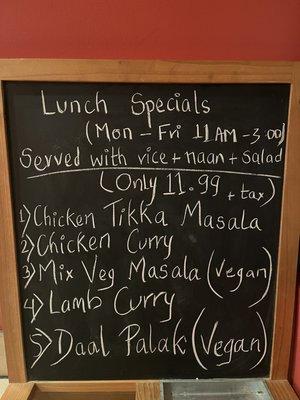 Lunch Specials
(Mon - Fri 11AM -3:00)
Served with rice + naan + Salad
(Only 11.99 + tax)
1) Chicken Tikka Masala
2) Chicken Curry
3) Mix Veg Masala (Vegan)
4) Lamb Curry
5) Daal Palak (Vegan)